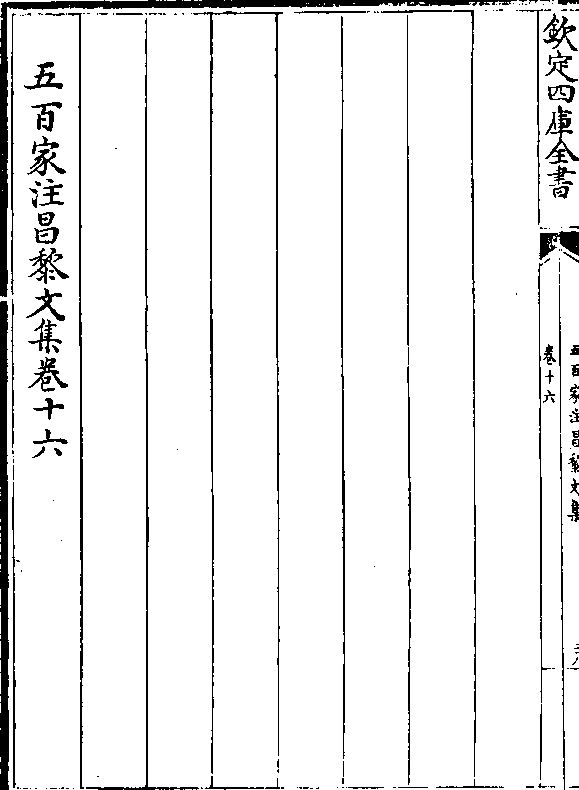 欽定四庫全書
五百家注昌黎文集
卷十六
五百家注昌黎文集卷十六